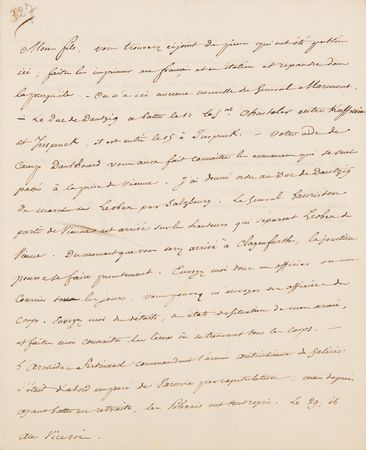 327
Mon fils, vous trouverez ci-joint des pièces qui ont été publiées
ici; faites les imprimer en français et en italien et répandre dans
la presqu'île. On n'a ici aucune nouvelle du Général Marmont.
— Le Duc de Dantzig a battu le 13 le Gal Chasteler entre Kuffstein
et Inspruck, et est entré le 15 à Inspruck. — Votre aide de
Camp Danthouard vous aura fait connaître les événemens qui se sont
passés à la prise de Vienne. J'ai donné ordre au Duc de Dantzig
de marcher sur Leoben par Salzbourg. Le Général Lauriston
parti de Vienne est arrivé sur les hauteurs qui séparent Leoben de
Vienne. Du moment que vous serez arrivé à Clagenfurth, la jonction
pourra se faire promtement. Envoyez moi donc un officier ou un
Courrier tous les jours. Vous pouvez m'envoyer des officiers de
Corps. Envoyez moi des détails, des états de situation de mon armée,
et faites moi connaître les lieux où se trouvent tous les corps. —
L'Archiduc Ferdinand commandant l'armée autrichienne de Galicie
s'était d'abord emparé de Varsovie par capitulation; mais depuis
ayant battu en retraite, les Polonais ont tout repris. Le 29, il
Au Viceroi.